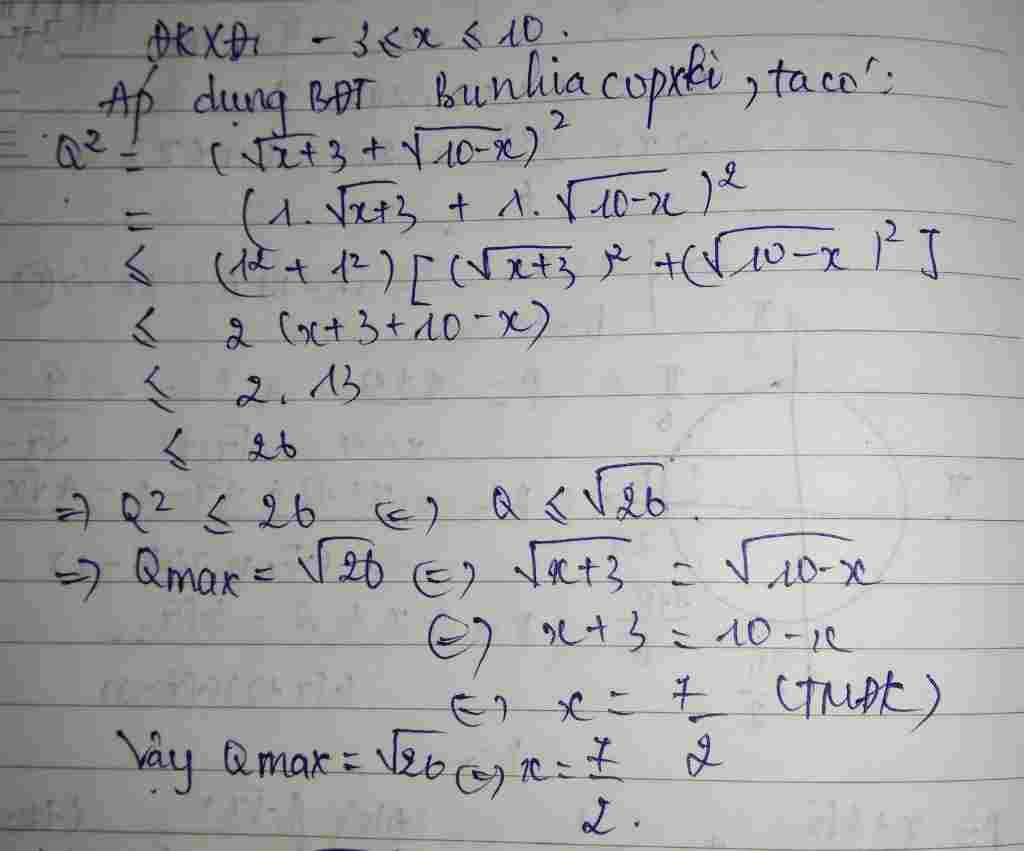 ĐKXĐ: -3 ≤ x ≤ 10.
Áp dụng BĐT Bunhiacopxki, ta có:
Q² = (√x+3 + √10-x)²
= (1.√x+3 + 1.√10-x)²
≤ (1² + 1²)[(√x+3)² + (√10-x)²]
≤ 2(x+3+10-x)
≤ 2.13
≤ 26
⇒ Q² ≤ 26 ⇔ Q ≤ √26.
⇒ Qmax = √26 ⇔ √x+3 = √10-x
⇔ x+3 = 10-x
⇔ x = 7/2 (TMĐK)
Vậy Qmax = √26 ⇔ x = 7/2.